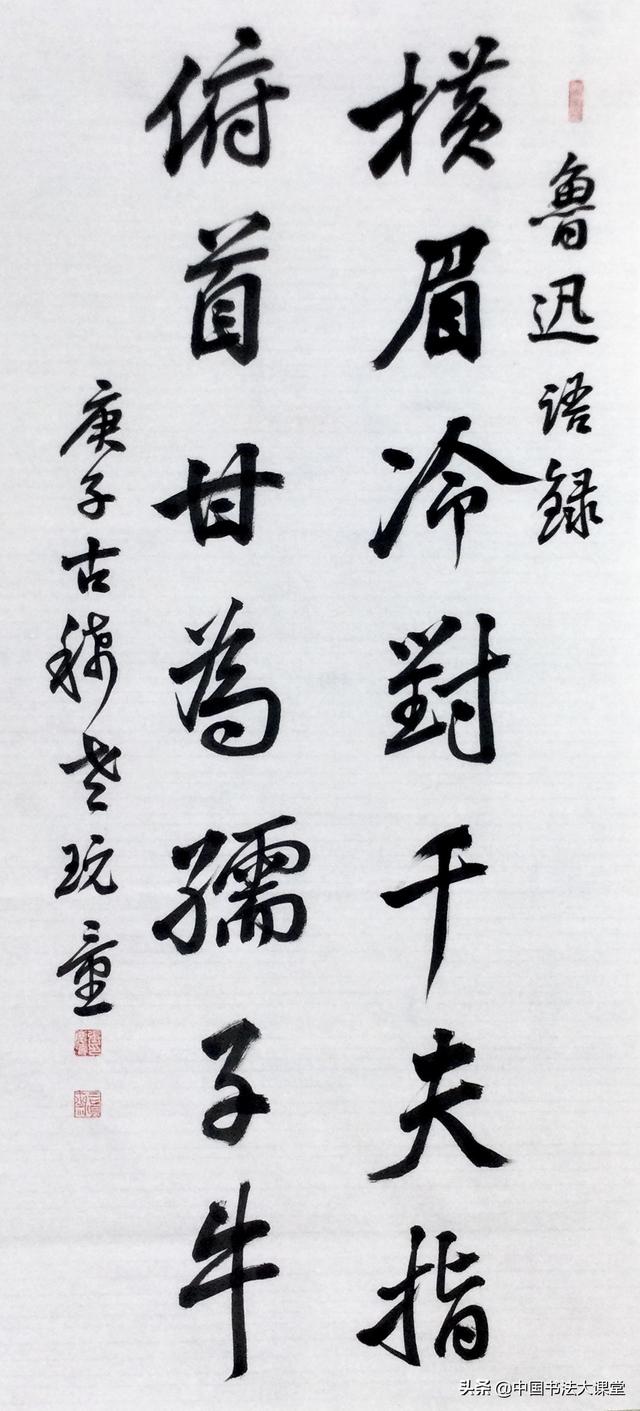 魯迅语録
橫眉冷對千夫指
俯首甘為孺子牛
庚子古稀老玩童
头条 @中国书法大课堂